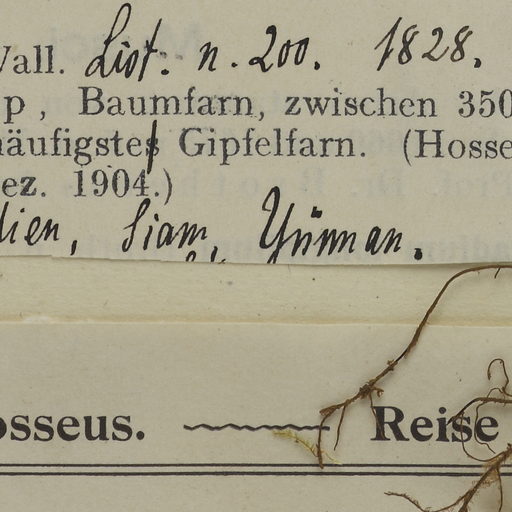 Wall. List. n. 200. 1828.
p, Baumfarn, zwischen 350
häufigstes Gipfelfarn. (Hosse
ez. 1904.)
dien, Siam, Yünnan.
osseus. Reise